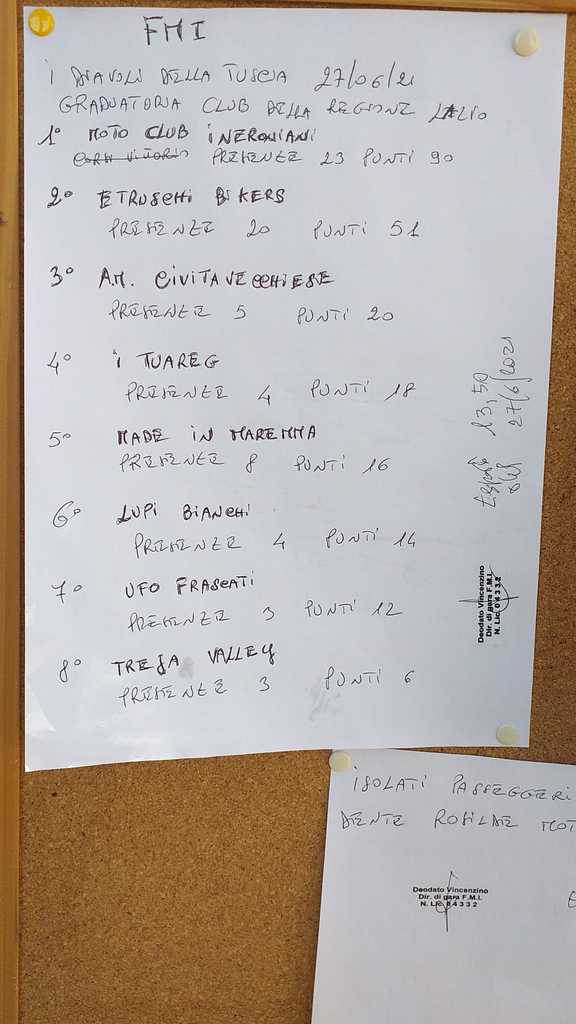 FMI
I DIAVOLI DELLA TUSCIA 27/06/21
GRADUATORIA CLUB DELLA REGIONE LAZIO
1° MOTO CLUB I NERONIANI
PRESENZE 23 PUNTI 90
2° ETRUSCHI BIKERS
PRESENZE 20 PUNTI 51
3° A.M. CIVITAVECCHIESE
PRESENZE 5 PUNTI 20
4° I TUAREG
PRESENZE 4 PUNTI 18
5° MADE IN MAREMMA
PRESENZE 8 PUNTI 16
6° LUPI BIANCHI
PRESENZE 4 PUNTI 14
7° UFO FRASCATI
PRESENZE 3 PUNTI 12
8° TREJA VALLEY
PRESENZE 3 PUNTI 6
13,50
27/6/2021
Deodato Vincenzino
Dir. di gara F.M.I.
N. Lic. 04332
ISOLATI PASSEGGERI
DENTE ROSILDE MOT
Deodato Vincenzino
Dir. di gara F.M.I.
N. Lic. 04332